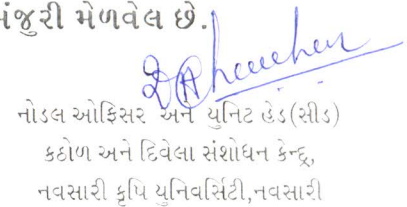 મંજુરી મેળવેલ છે.
નોડલ ઓફિસર અને યુનિટ હેડ(સીડ)
કઠોળ અને દિવેલા સંશોધન કેન્દ્ર,
નવસારી કૃષિ યુનિવર્સિટી,નવસારી